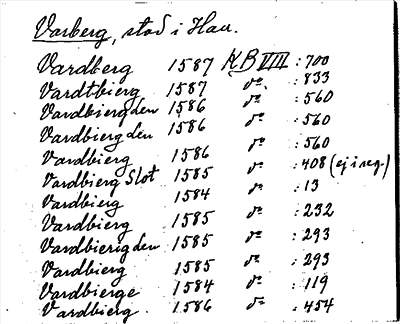 Varberg, stad i Hall.
Vardberg 1587 KB VIII : 700
Vardtbierg 1587 do : 833
Vardbiergden 1586 do : 560
Vardbiergden 1586 do : 560
Vardbierg 1586 do : 560
Vardbierg Slot 1585 do : 408 (ej i reg.)
Vardbierg 1584 do : 13
Vardbierg 1585 do : 232
Vardbierigden 1585 do : 293
Vardbierg 1585 do : 293
Vardbierge 1584 do : 119
Vardbierg. 1586 do : 454